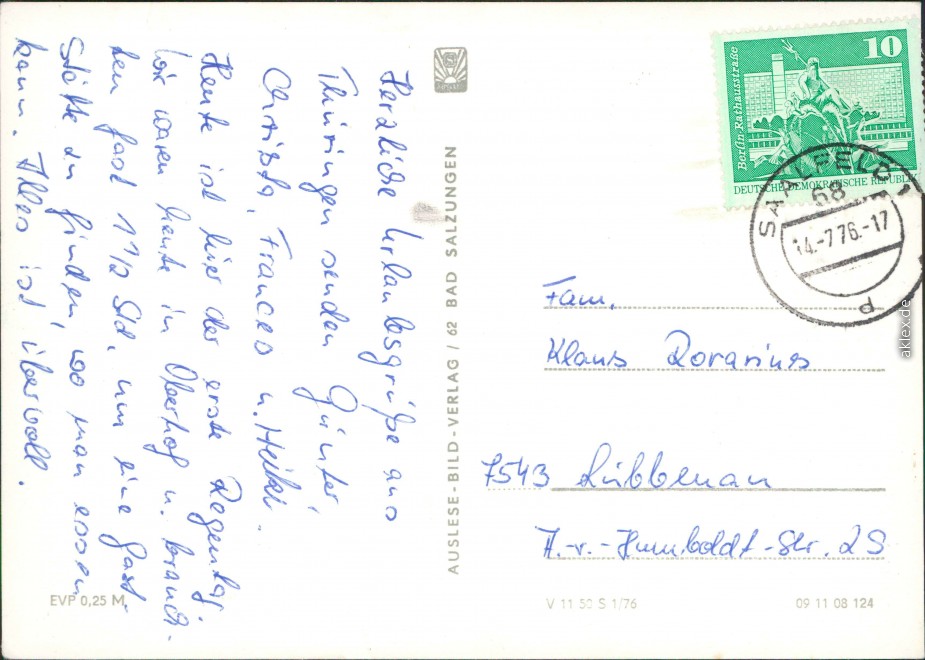 Herzliche Urlaubsgrüße aus
Thüringen senden Günter,
Christa, Frances u. Heiki.
Heute ist hier der erste Regentag.
Wir waren heute in Oberhof u. brauch-
ten fast 1 1/2 Std. um eine Gast-
stätte zu finden, wo man essen
kann. Alles ist übervoll.
EVP 0,25 M
AUSLESE-BILD-VERLAG / 62 BAD SALZUNGEN
10
Berlin, Rathausstraße
DEUTSCHE DEMOKRATISCHE REPUBLIK
SAALFELD 1
68
14.-7.76.-17
p
Fam.
Klaus
7543 Lübbenau
A.-v.-Humboldt-Str. 25
V 11 50 S 1/76
09 11 08 124
aklex.de